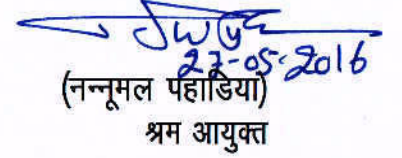 27-05-2016
(नन्नूमल पहाडिया)
श्रम आयुक्त